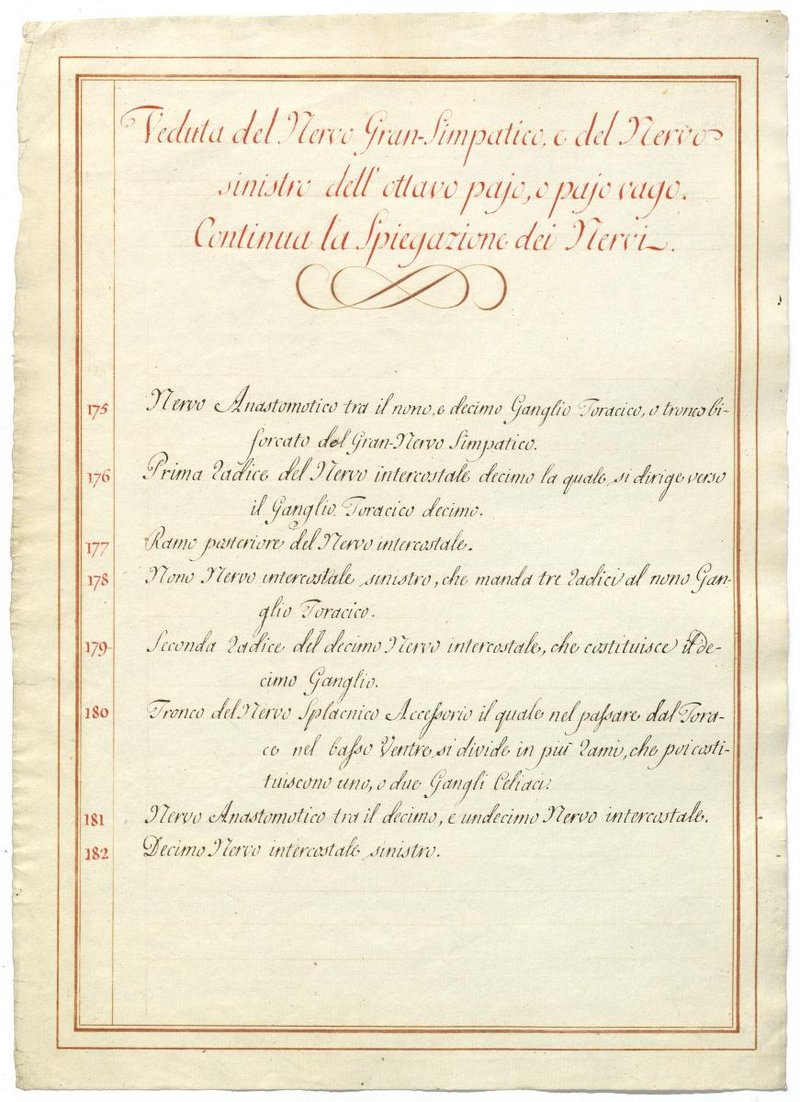 Veduta del Nervo Gran-Simpatico, e del Nervo
sinistro dell' ottavo pajo, o pajo vago.
Continua la Spiegazione dei Nervi.
175 Nervo Anastomotico tra il nono, e decimo Ganglio Toracico, o tronco bi-
forcato del Gran-Nervo Simpatico.
176 Prima radice del Nervo intercostale decimo la quale si dirige verso
il Ganglio Toracico decimo.
177 Ramo posteriore del Nervo intercostale.
178 Nono Nervo intercostale sinistro, che manda tre radici al nono Gan-
glio Toracico.
179 Seconda radice del decimo Nervo intercostale, che costituisce il de-
cimo Ganglio.
180 Tronco del Nervo Splacnico Accessorio il quale nel passare dal Tora-
ce nel basso Ventre, si divide in più rami, che poi costi-
tuiscono uno, o due Gangli Celiaci.
181 Nervo Anastomotico tra il decimo, e undecimo Nervo intercostale.
182 Decimo Nervo intercostale sinistro.